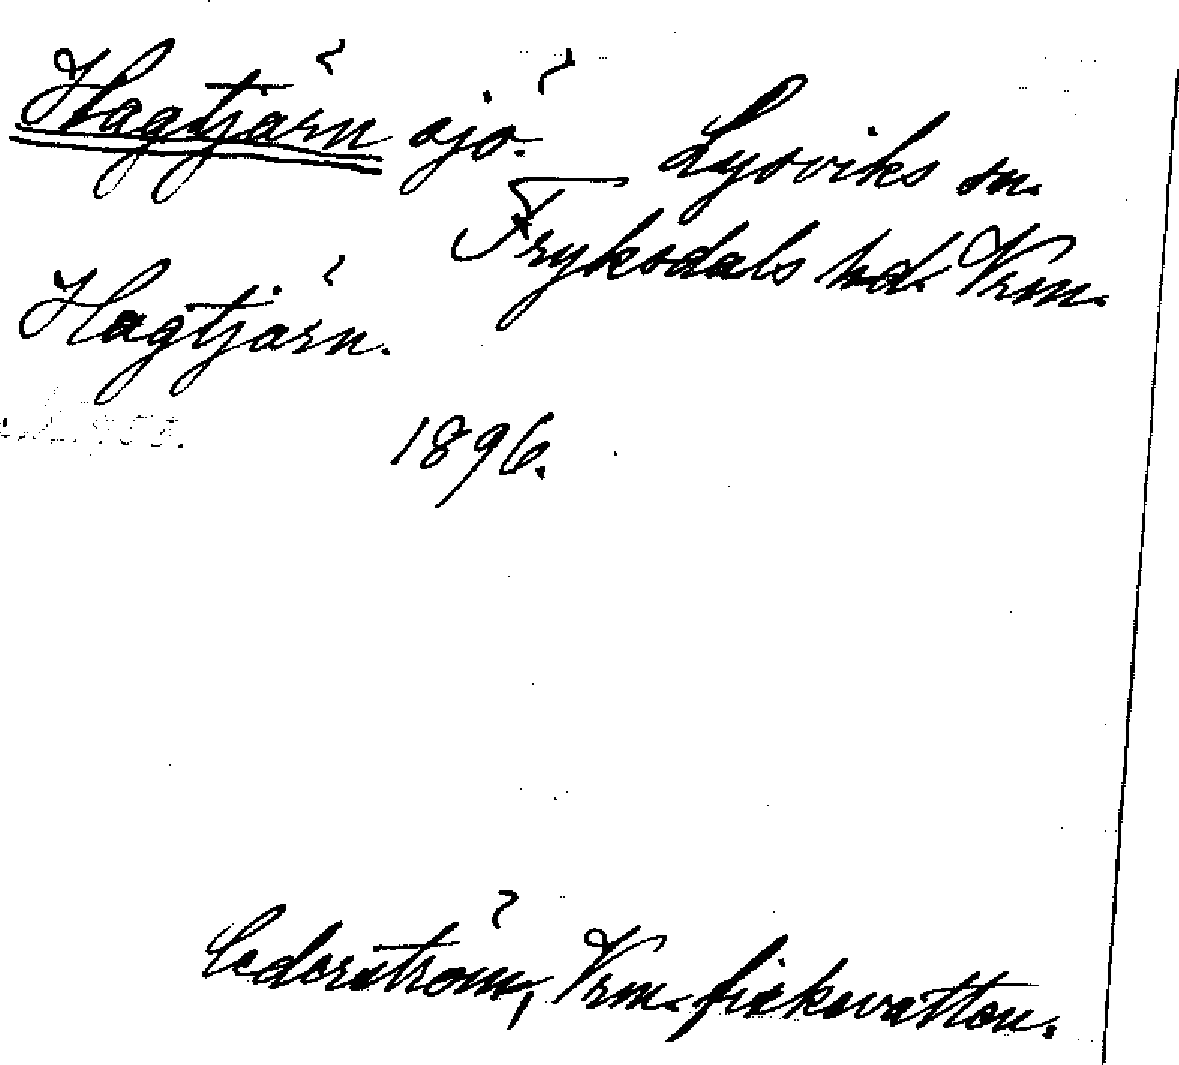 Hagtjärn sjö. Lysviks sn.
Fryksdals hd. Vrm.
Hagtjärn.
1896.
Cederström, Vrm. fiskevatten.